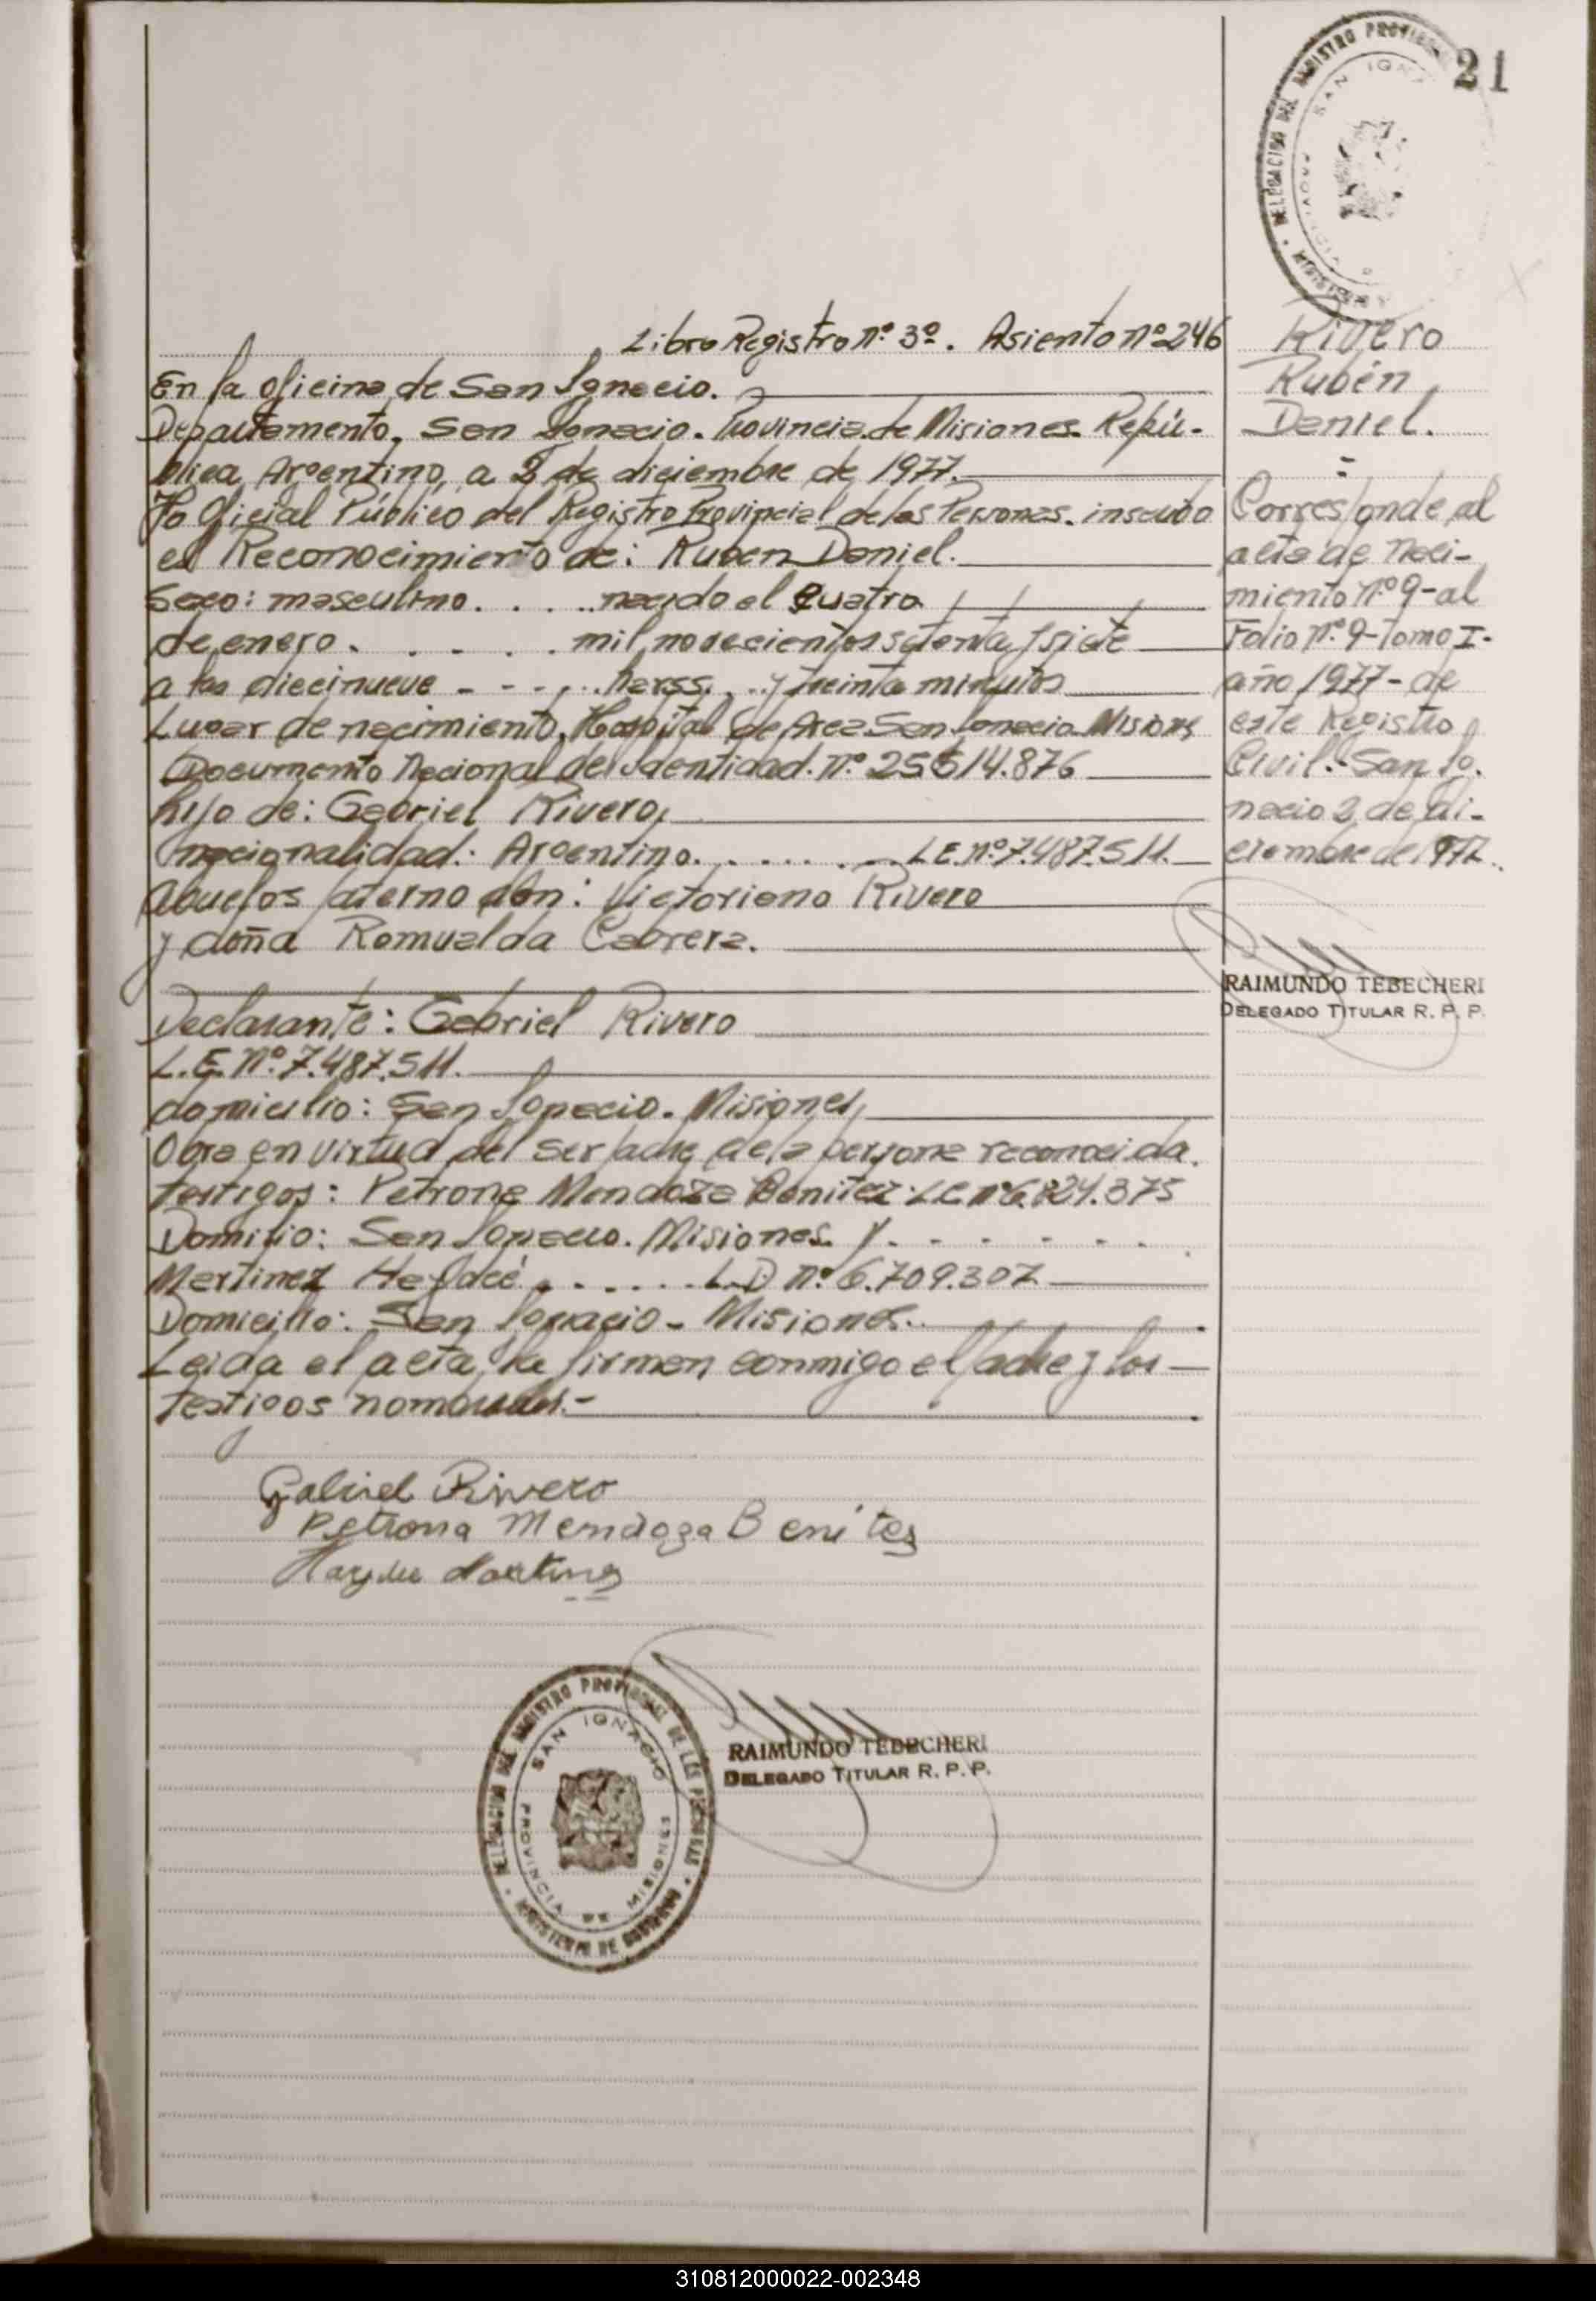 21
DELEGACION DEL REGISTRO PROVINCIAL
SAN IGNA
Libro Registro nº 3º. Asiento nº 246
En la oficina de San Ignacio.
Departamento, San Ignacio. Provincia de Misiones Repú-
blica Argentina, a 2 de diciembre de 1977.
Yo Oficial Público del Registro Provincial de las Personas. inscribo
el Reconocimiento de: Ruben Daniel.
Sexo: masculino. . . . . nacido el cuatro
de enero . . . . . mil novecientos setenta y siete
a las diecinueve - - - . . horss. . . y treinta minutos
Lugar de nacimiento, Hospital de Area San Ignacio Misiones
Documento Nacional de Identidad. nº 25614.876
hijo de: Gabriel Rivero,
nacionalidad: Argentino. . . . . . L.E. nº 7.487.511.
Abuelos paterno don: Victoriano Rivero
y doña Romualda Cabrera.
Declarante: Gabriel Rivero
L.E. Nº. 7.487.511.
domicilio: San Ignacio. Misiones,
Obra en virtud del ser padre de la persona reconocida.
testigos: Petrona Mendoza Benitez L.C. nº 6.824.375
Domicio: San Ignacio. Misiones. y. - - - - -
Martinez . . . . . L.D nº 6.709.307
Domicilio: San Ignacio - Misiones.
Leida el acta, la firman conmigo el padre y los
testigos nombrados.-
Gabriel Rivero
Petrona Mendoza Benites
Martinez
DELEGACION DEL REGISTRO PROVINCIAL DE LAS PERSONAS
SAN IGNACIO
PROVINCIA DE MISIONES
MINISTERIO DE GOBIERNO
RAIMUNDO TEBECHERI
DELEGADO TITULAR R. P. P.
Rivero
Rubén
Daniel.
=
Corresponde al
acta de Naci-
miento Nº 9-al
Folio nº 9-Tomo I-
año 1977- de
este Registro
Civil. San Ig-
nacio 2 de di-
ciembre de 1977.
RAIMUNDO TEBECHERI
DELEGADO TITULAR R. P. P.
310812000022-002348